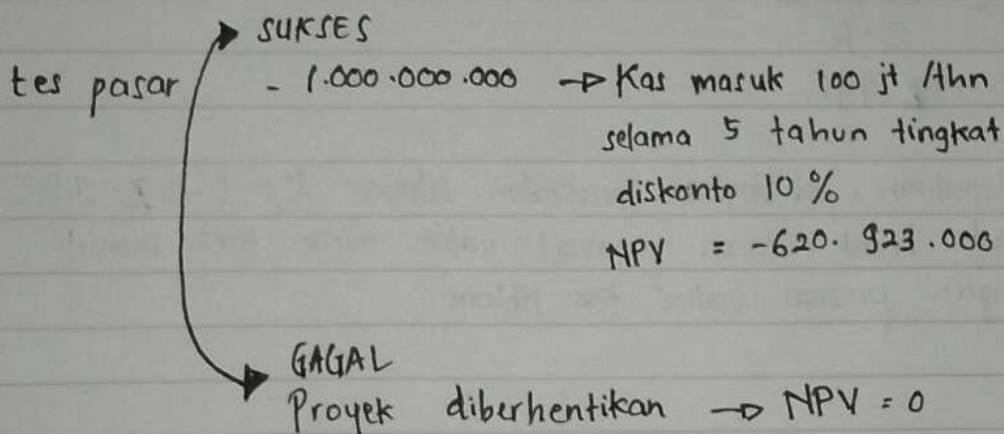 SUKSES
tes pasar - 1.000.000.000 → Kas masuk 100 jt /thn
selama 5 tahun tingkat
diskonto 10 %
NPV = -620.923.000
GAGAL
Proyek diberhentikan → NPV = 0